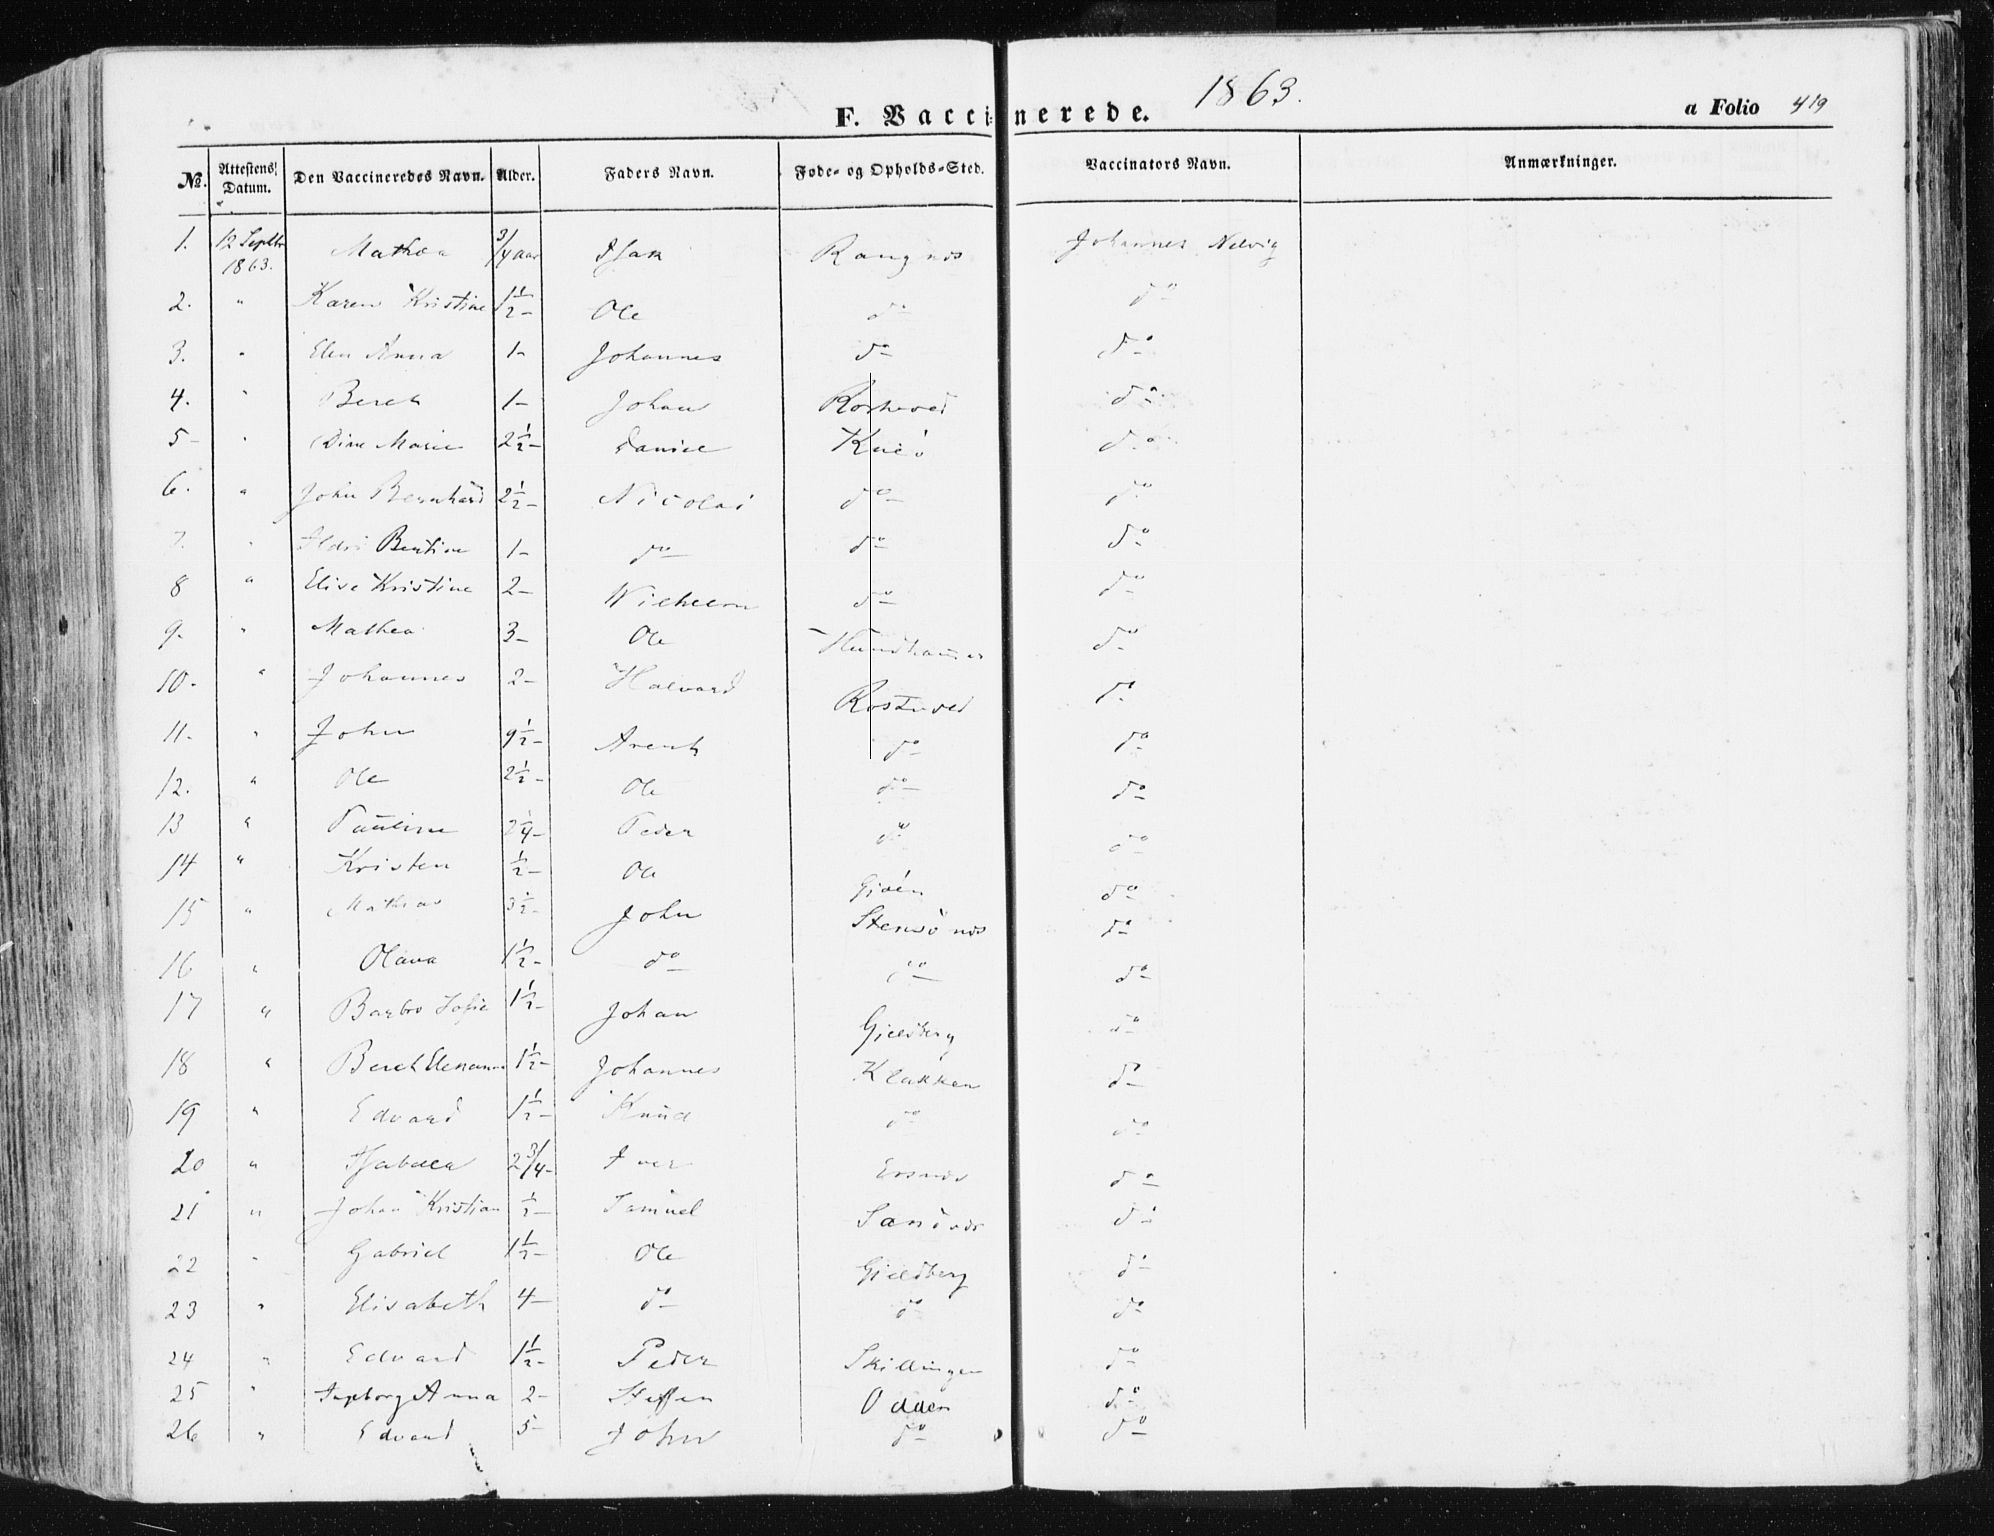 F. Vaccinerede. 1863. a Folio 419
№. Attestens Datum. Den Vaccineredes Navn. Alder. Faders Navn. Føde- og Opholds-Sted. Vaccinators Navn. Anmærkninger.
1. 12 Septbr 1863. Mathea 3/4 aar Isak Johannes
2. " Karen Kristine 1 1/2 - Ole do do
3. " Elen Anna 1 - Johannes do do
4. " Beret 1 - Johan do
5 - " Dine Marie 2 1/2 - Daniel do
6. " John Bernhard 2 1/2 - Nicolai do do
7. " Bentine 1 - do do do
8 " Elise Kristine 2 - Wilhelm do do
9 - " Mathea 3 - Ole do
10 - " Johannes 2 - Halvard do
11 - " John 9 1/2 - Arent do do
12. " Ole 2 1/2 - Ole do do
13 " Pauline 2 1/4 - Peder do do
14 " Kristen 1/2 - Ole do
15 " Mathias 3 1/2 - John do
16 " Olava 1 1/2 - do do do
17 " Barbro Sofie 1 1/2 - Johan do
18 " Beret 1 1/2 - Johannes Klakken do
19 " Edvard 1 1/2 - Knud do do
20 " 2 3/4 - Iver do
21 " Johan Kristian 1/2 - Samuel do
22 " Gabriel 1 1/2 - Ole Gjeldberg do
23 " Elisabeth 4 - do do do
24 " Edvard 1 1/2 - Peder do
25 " Ingeborg Anna 2 - Steffen Odden do
26 " Edvard 5 - John do do